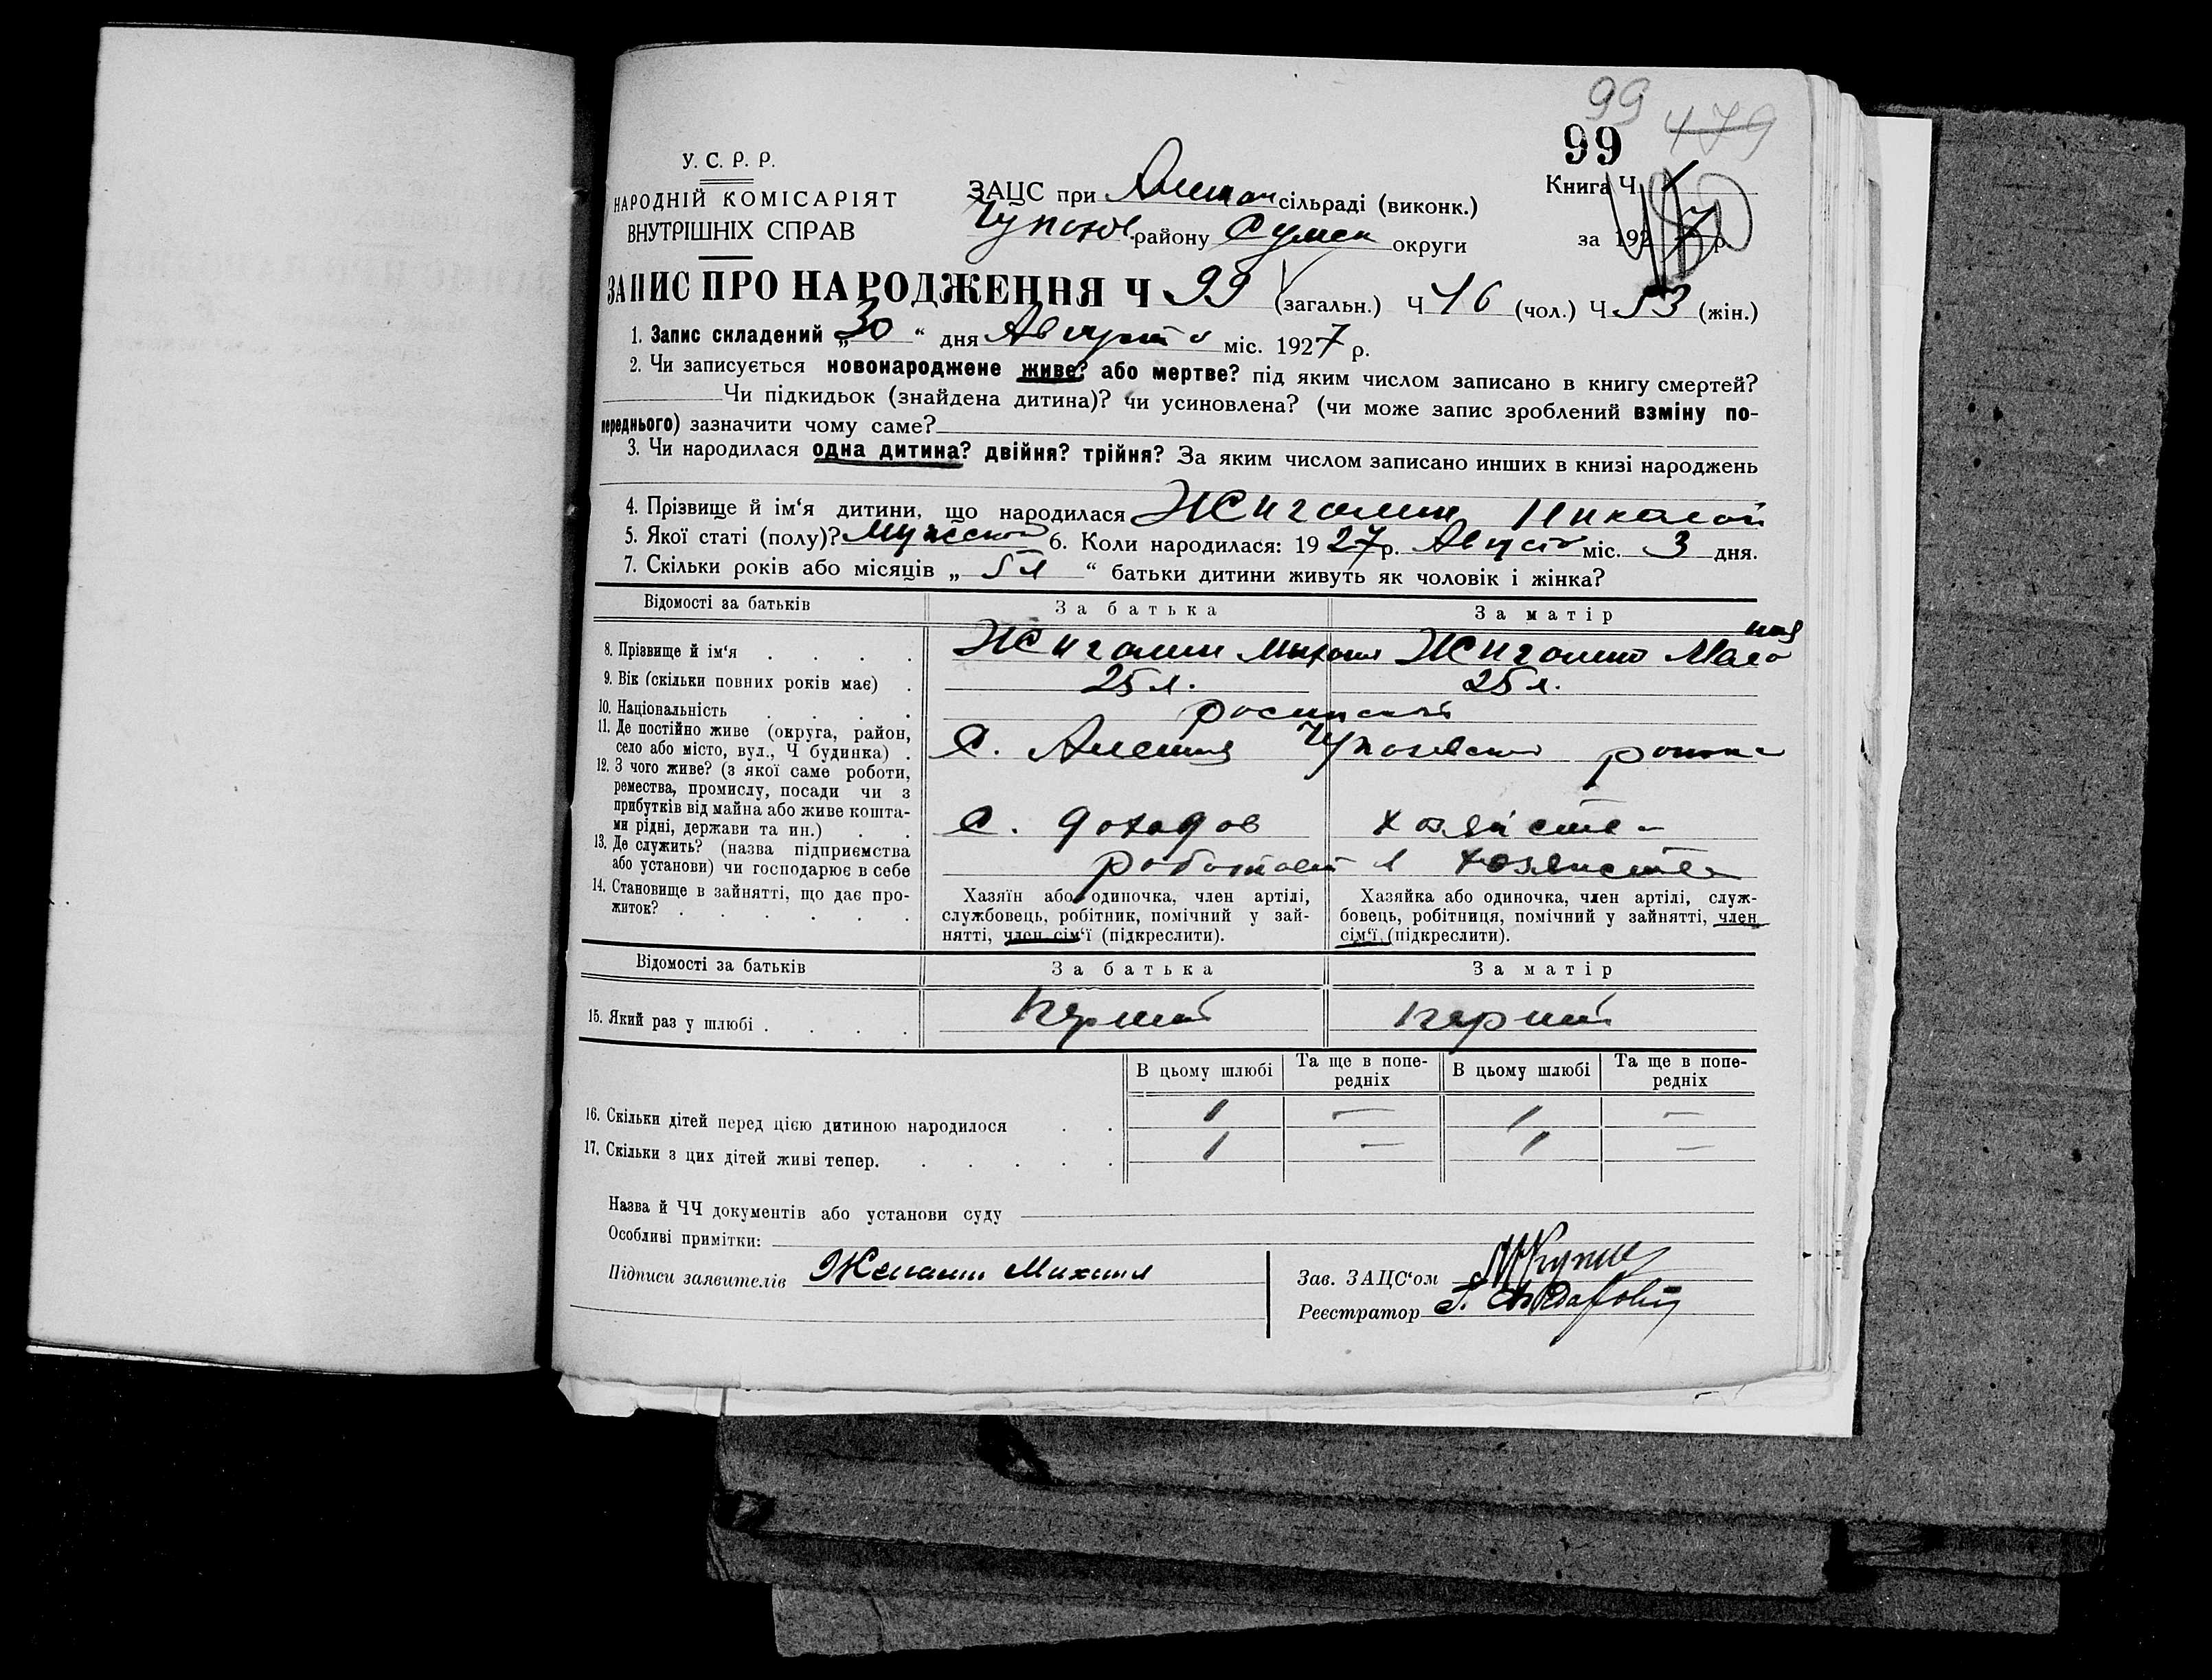 99 479
99
У. С. Р. Р.
НАРОДНІЙ КОМІСАРІЯТ
ВНУТРІШНІХ СПРАВ
ЗАЦС при Алешан сільраді (виконк.)
Чупахов. району Сумск округи
Книга Ч.
за 1927 р.
ЗАПИС ПРО НАРОДЖЕННЯ Ч 99 (загальн.) Ч 46 (чол.) Ч 53 (жін.)
1. Запис складений „30“ дня Августа міс. 1927 р.
2. Чи записується новонароджене живе? або мертве? під яким числом записано в книгу смертей?
Чи підкидьок (знайдена дитина)? чи усиновлена? (чи може запис зроблений взміну по-
переднього) зазначити чому саме?
3. Чи народилася одна дитина? двійня? трійня? За яким числом записано инших в книзі народжень
4. Прізвище й ім‘я дитини, що народилася Жигалин Николой
5. Якої статі (полу)? Мужской 6. Коли народилася: 1927 р. Августа міс. 3 дня.
7. Скільки років або місяців „ 5 л “ батьки дитини живуть як чоловік і жінка?
Відомості за батьків За батька За матір
8. Прізвище й ім‘я . . . . Жигалин Михаил Жигалина
9. Вік (скільки повних років має) . 25 л. 25 л.
10. Національність . . . .
11. Де постійно живе (округа, район,
село або місто, вул., Ч будинка) . С. Алешня Чупаховского района
12. З чого живе? (з якої саме роботи,
ремества, промислу, посади чи з
прибутків від майна або живе кошта-
ми рідні, держави та ин.) . . С. доходов хозяйства
13. Де служить? (назва підприємства
або установи) чи господарює в себе работает в хозяйстве
14. Становище в зайнятті, що дає про-
житок? . . . . . . .
Хазяїн або одиночка, член артілі,
службовець, робітник, помічний у зай-
нятті, член сім‘ї (підкреслити).
Хазяйка або одиночка, член артілі, служ-
бовець, робітниця, помічний у зайнятті, член
сім‘ї (підкреслити).
Відомості за батьків За батька За матір
15. Який раз у шлюбі . . . . первий первий
В цьому шлюбі Та ще в попе-
редніх В цьому шлюбі Та ще в попе-
редніх
16. Скільки дітей перед цією дитиною народилося . . 1 — 1 —
17. Скільки з цих дітей живі тепер. . . . . . . 1 — 1 —
Назва й ЧЧ документів або установи суду
Особливі примітки:
Підписи заявителів Михаил
Зав. ЗАЦС‘ом
Реєстратор